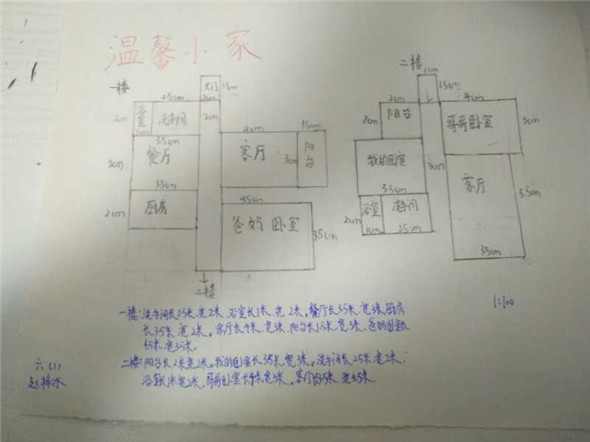 温馨小家
一楼
二楼
大门
1.5cm
2.5cm
2cm
浴室
洗手间
2cm
3.5cm
3cm
餐厅
3.5cm
2cm
厨房
4cm
1.5cm
客厅
3cm
阳台
4.5cm
爸妈卧室
3.5cm
二楼
1.5cm
2cm
阳台
4cm
哥哥卧室
3cm
3cm
我的卧室
3cm
3.5cm
客厅
5.5cm
2cm
浴室
洗手间
1cm
2.5cm
3.5cm
1:100
一楼:洗手间长2.5米,宽2米,浴室长1米,宽2米。餐厅长3.5米,宽3米,厨房
长3.5米,宽2米。客厅长4米,宽3米,阳台长1.5米,宽3米,爸妈卧室长
4.5米,宽3.5米。
二楼:阳台长2米,宽2米。我的卧室长3.5米,宽3米。洗手间长2.5米,宽2米.
六(1)